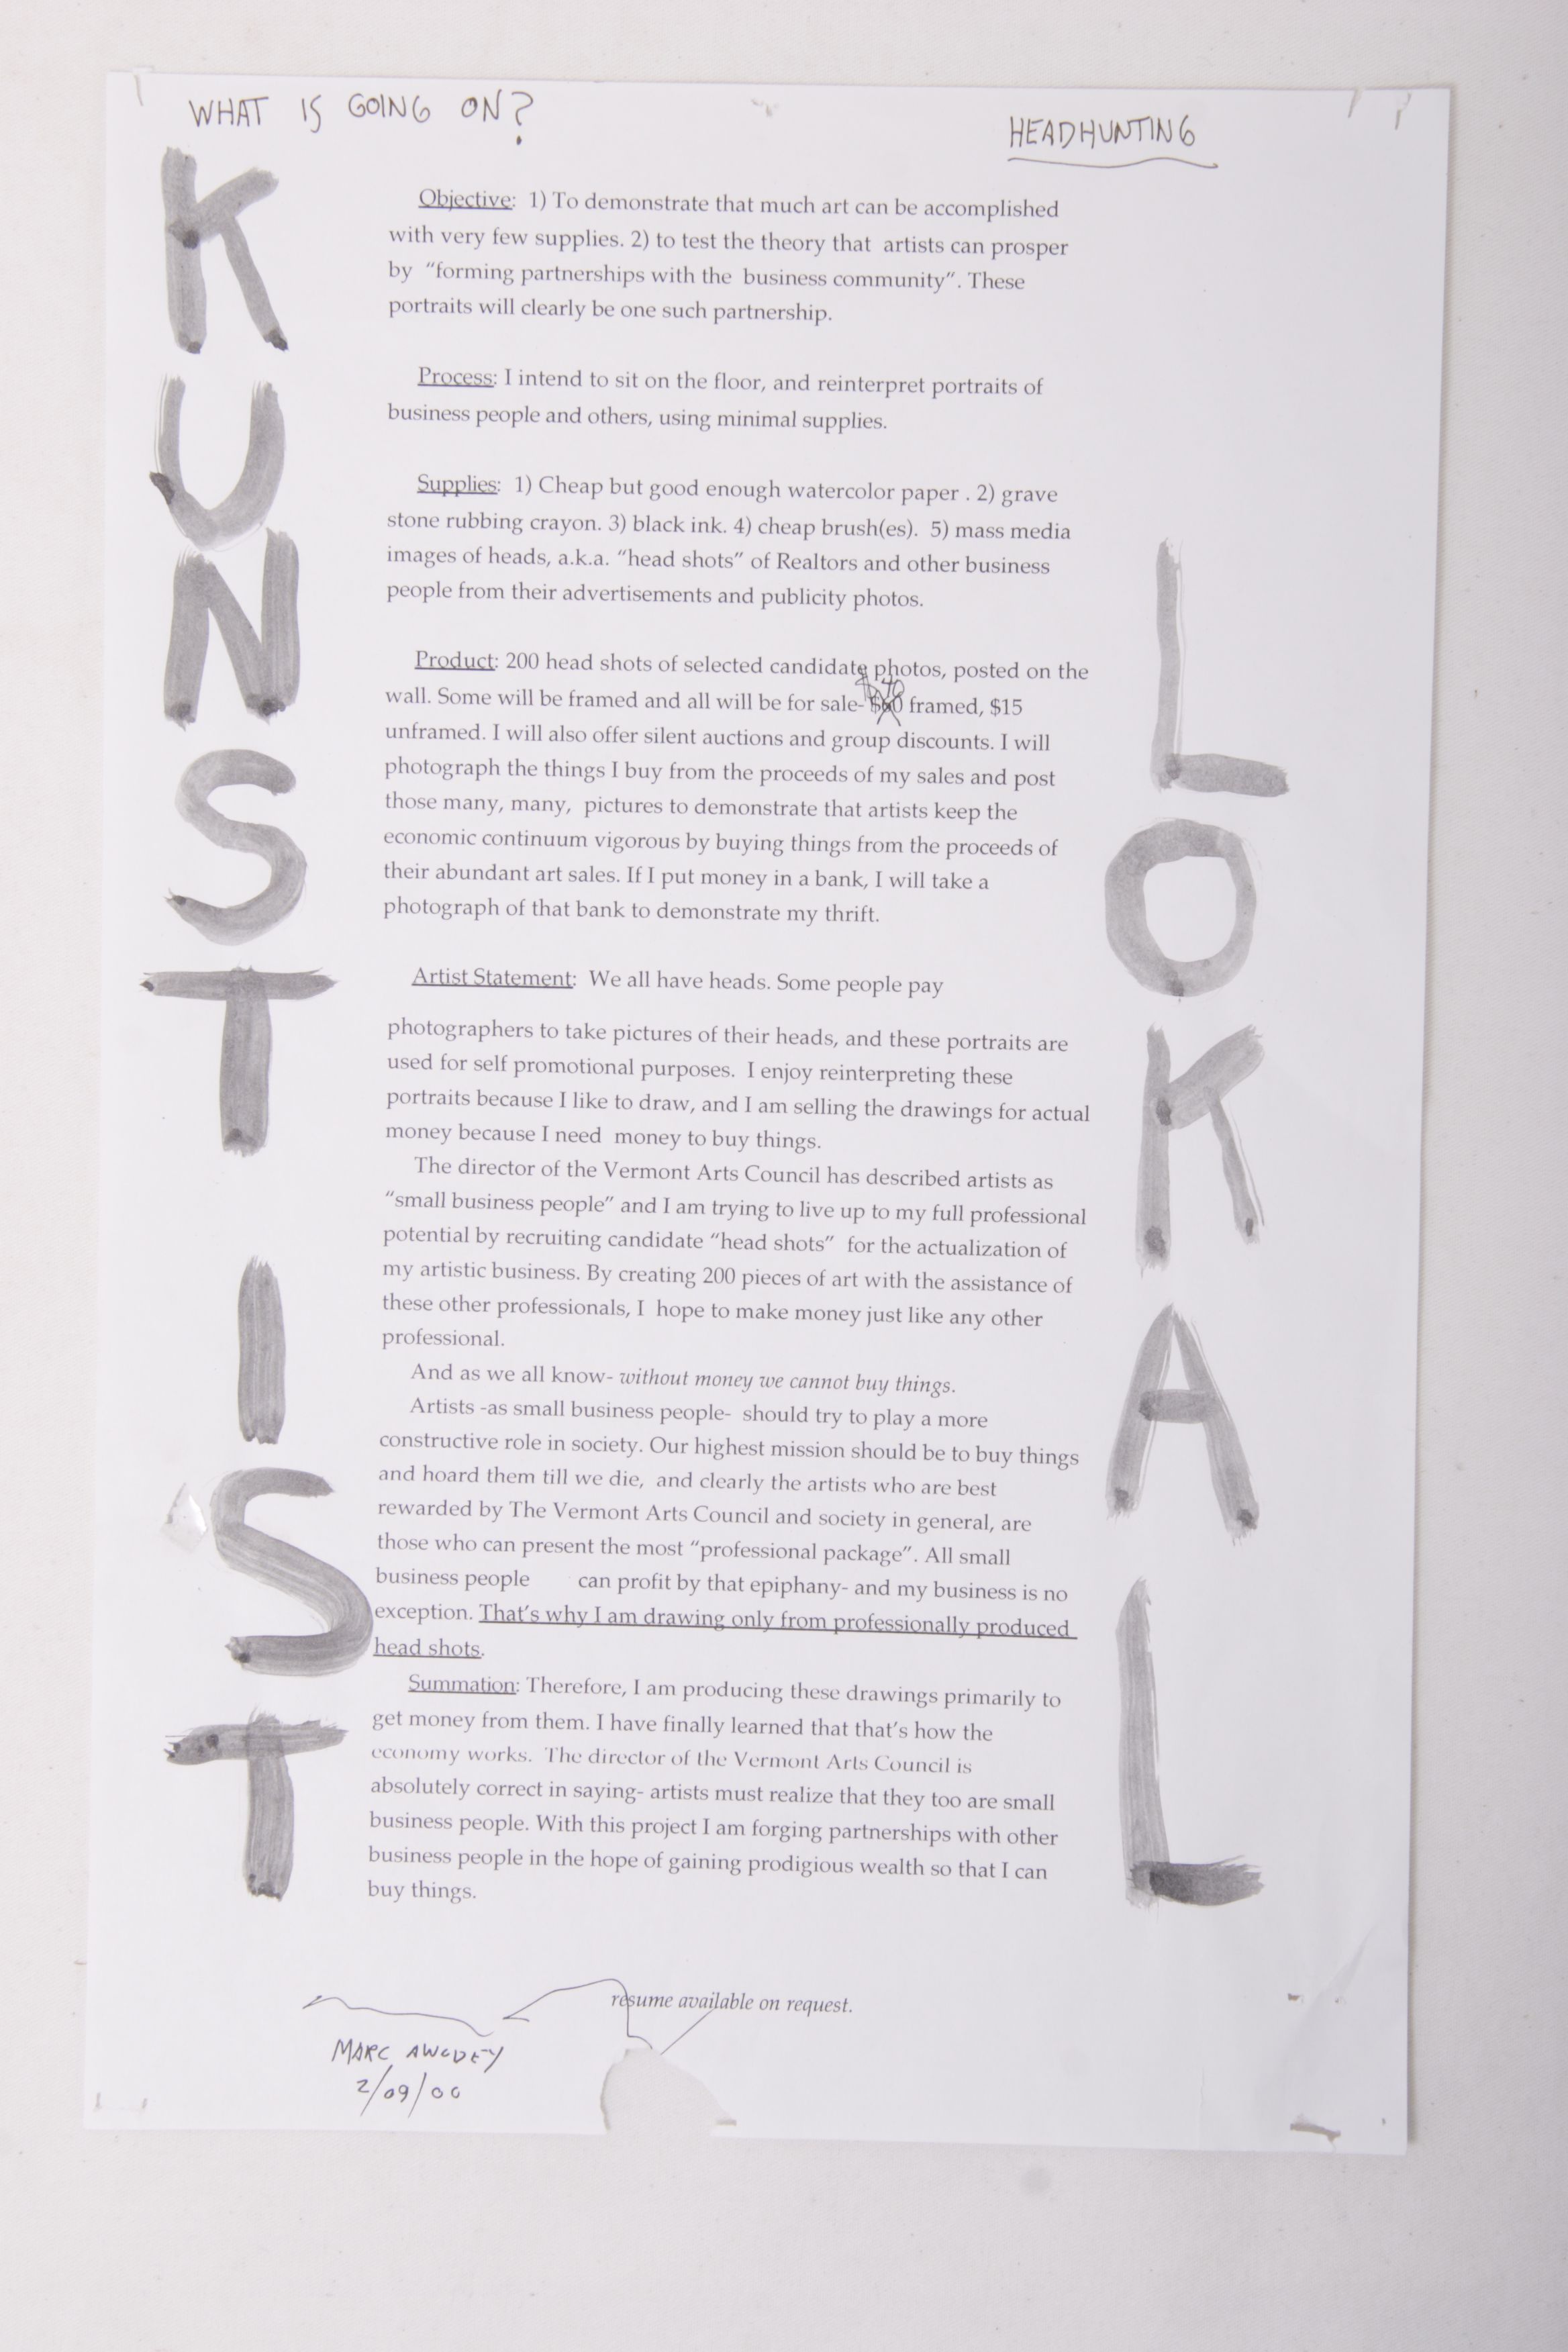 WHAT IS GOING ON?
HEADHUNTING
KUNST IST
LOKAL
Objective: 1) To demonstrate that much art can be accomplished
with very few supplies. 2) to test the theory that artists can prosper
by “forming partnerships with the business community”. These
portraits will clearly be one such partnership.
Process: I intend to sit on the floor, and reinterpret portraits of
business people and others, using minimal supplies.
Supplies: 1) Cheap but good enough watercolor paper . 2) grave
stone rubbing crayon. 3) black ink. 4) cheap brush(es). 5) mass media
images of heads, a.k.a. “head shots” of Realtors and other business
people from their advertisements and publicity photos.
Product: 200 head shots of selected candidate photos, posted on the
wall. Some will be framed and all will be for sale- $40 framed, $15
unframed. I will also offer silent auctions and group discounts. I will
photograph the things I buy from the proceeds of my sales and post
those many, many, pictures to demonstrate that artists keep the
economic continuum vigorous by buying things from the proceeds of
their abundant art sales. If I put money in a bank, I will take a
photograph of that bank to demonstrate my thrift.
Artist Statement: We all have heads. Some people pay
photographers to take pictures of their heads, and these portraits are
used for self promotional purposes. I enjoy reinterpreting these
portraits because I like to draw, and I am selling the drawings for actual
money because I need money to buy things.
The director of the Vermont Arts Council has described artists as
“small business people” and I am trying to live up to my full professional
potential by recruiting candidate “head shots” for the actualization of
my artistic business. By creating 200 pieces of art with the assistance of
these other professionals, I hope to make money just like any other
professional.
And as we all know- without money we cannot buy things.
Artists -as small business people- should try to play a more
constructive role in society. Our highest mission should be to buy things
and hoard them till we die, and clearly the artists who are best
rewarded by The Vermont Arts Council and society in general, are
those who can present the most “professional package”. All small
business people can profit by that epiphany- and my business is no
exception. That’s why I am drawing only from professionally produced
head shots.
Summation: Therefore, I am producing these drawings primarily to
get money from them. I have finally learned that that’s how the
economy works. The director of the Vermont Arts Council is
absolutely correct in saying- artists must realize that they too are small
business people. With this project I am forging partnerships with other
business people in the hope of gaining prodigious wealth so that I can
buy things.
resume available on request.
MARC AWODEY
2/09/00